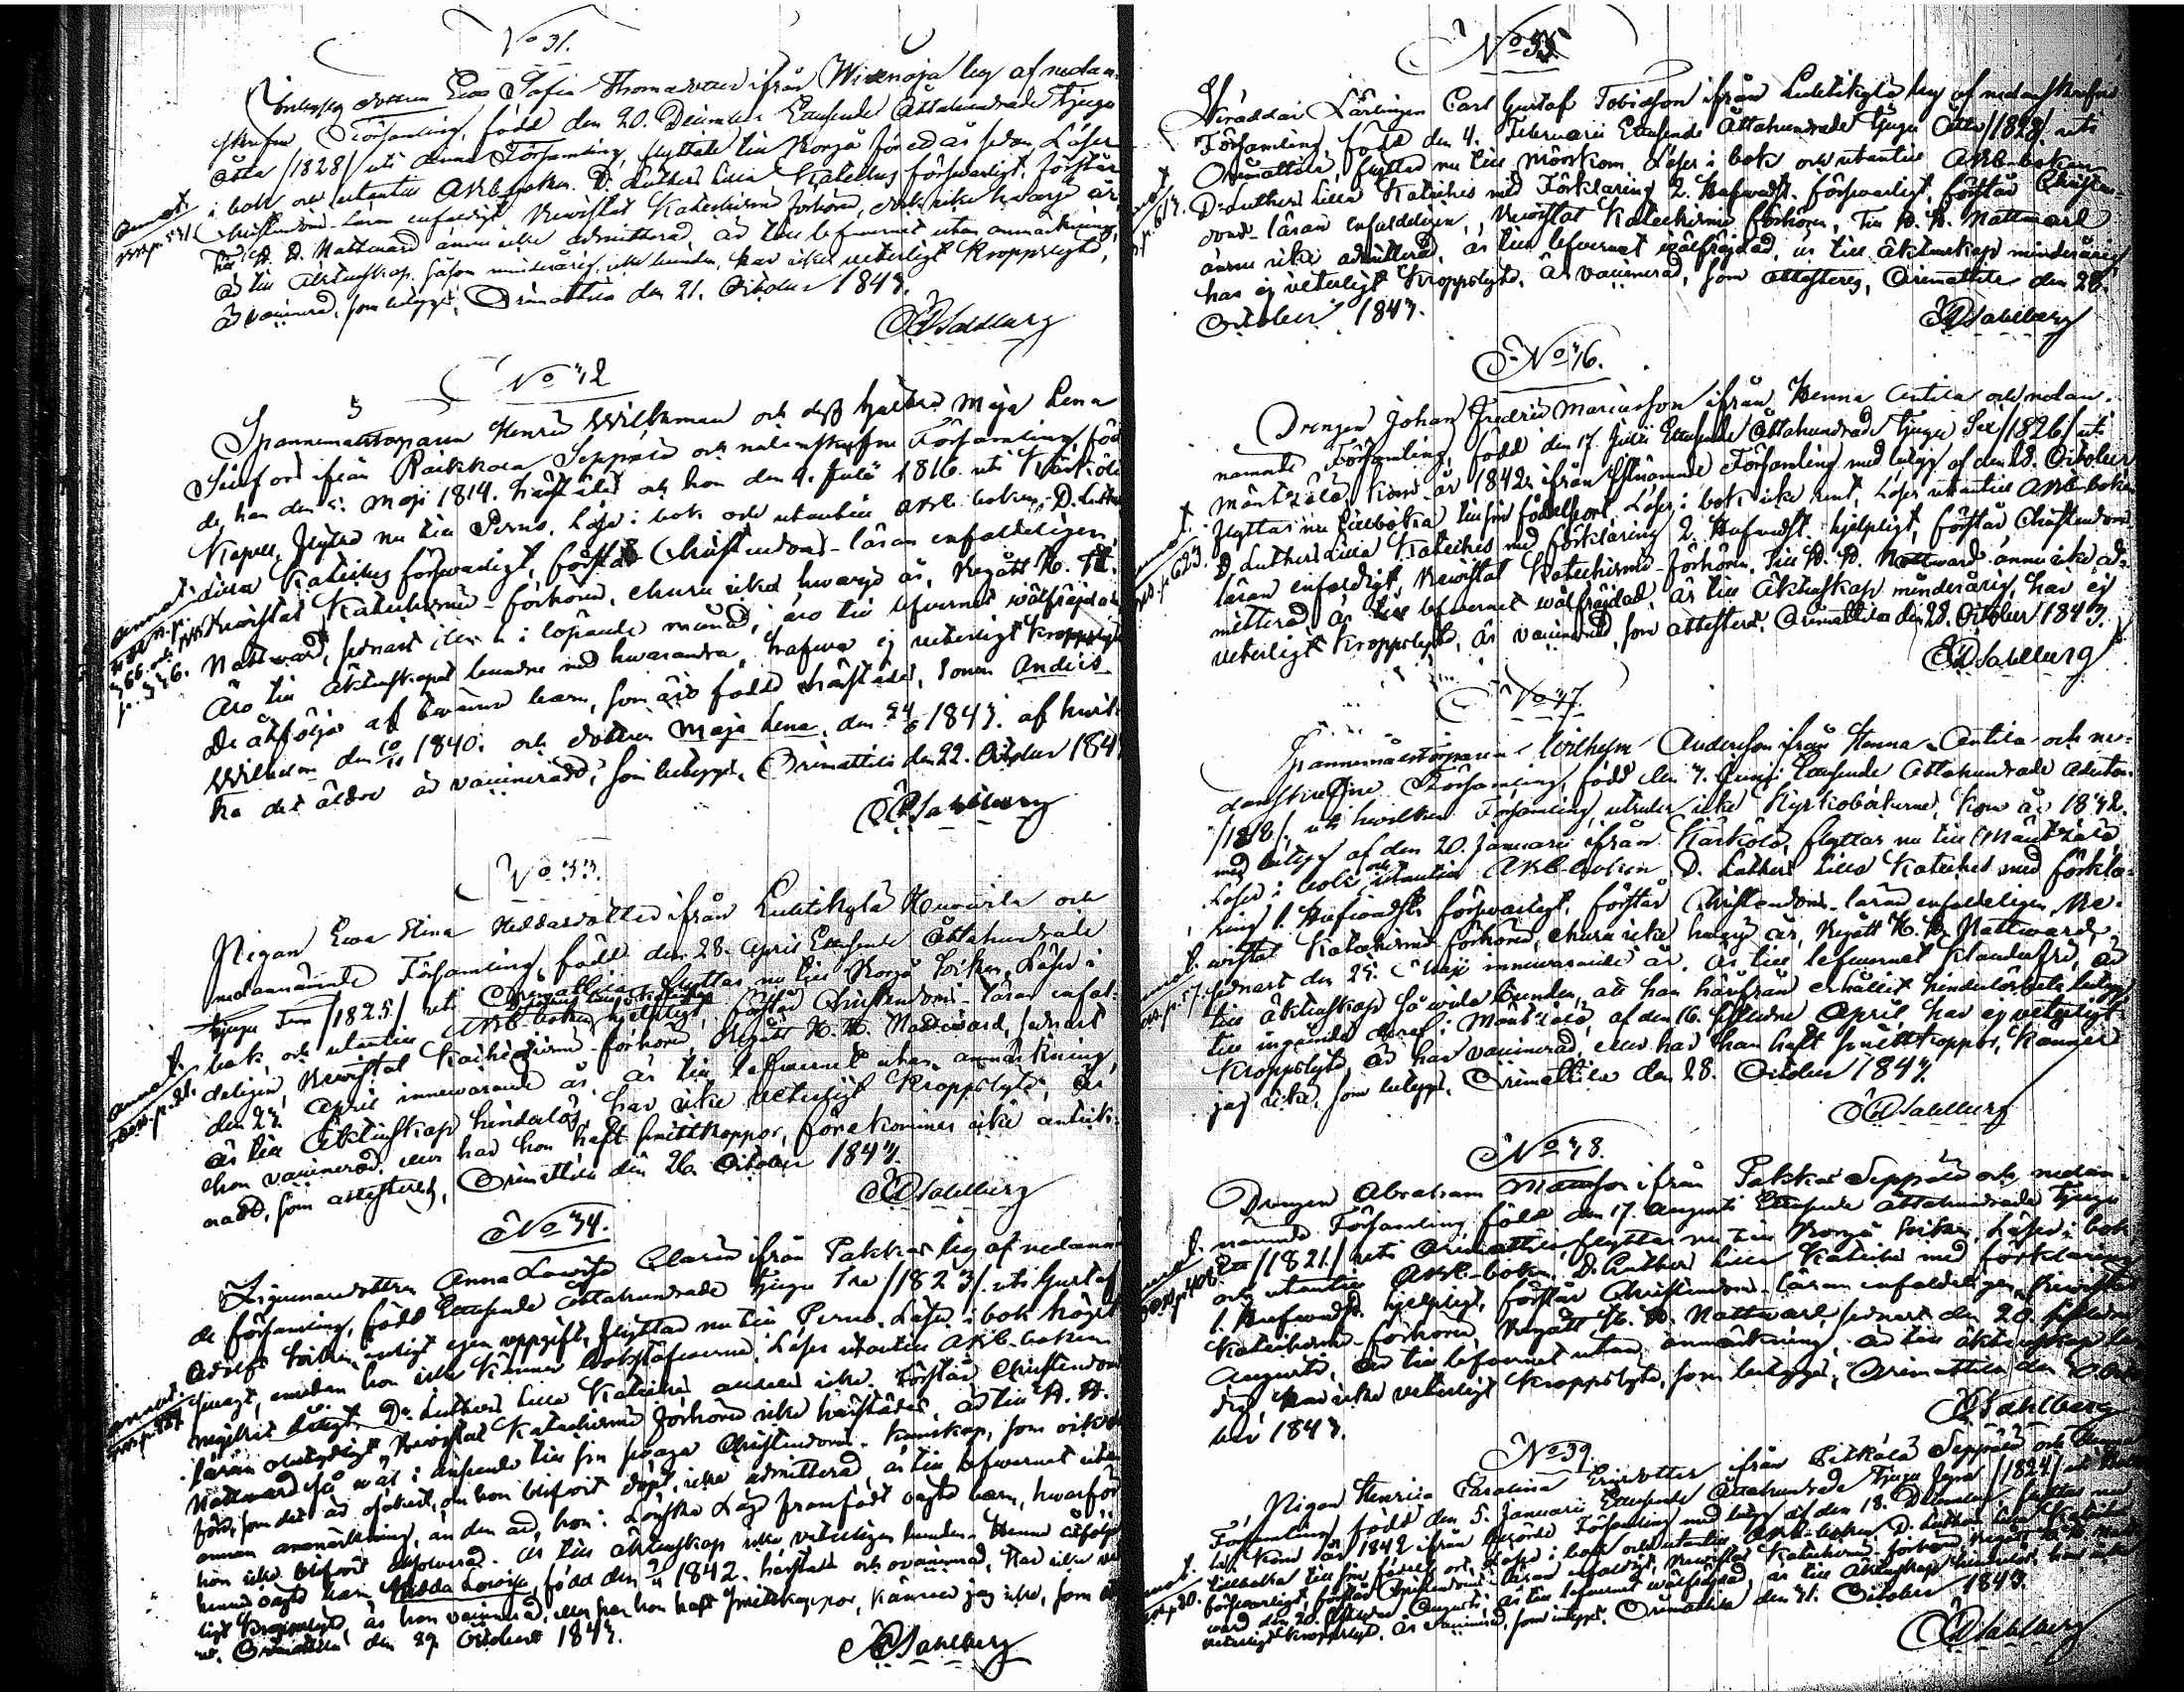 No 31.
dottren Ewa Sofia Thomasdotter ifrån
Församling, född den 20. December Ettusende Åttahundrade Tjugo
åtta /1828/ uti denna Församling, flyttade till Borgå för ett år sedan, Läser
i bok och utantill ABC-boken, D. Luthers Lilla Kateches försvarligt, förstår
Christendoms-läran enfaldigt, Bewistat Katechismi förhören, dock icke hwarje år,
till H. H. Nattward ännu icke admitterad, är till lefwernet utan anmärkning,
är till äktenskap, såsom minderårig, icke bunden, har icke veterligt kroppslyte,
är vaccinerad, som betygas, Orimattila den 21. October 1843.
Annot.
CD Sahlberg
No 32
Spannemålstorparen Henric Wilkman och dess hustru Maja Lena
Sinford ifrån Seppälä och nedanskrefne Församling, föd-
de, han den 5. Maji 1814. härstädes och hon den 4. Julii 1816. uti Kärkölä
Kapell, flytta nu till Perno, Läsa i bok och utantill ABC boken, D. Luthers
Lilla Kateches försvarligt, förstå Christendoms-läran enfaldeligen,
Bewistat Katechismi-förhören, ehuru icke hwarje år, Begått H. H.
Nattward, sednast i löpande månad, äro till lefwernet wälfrejdade,
Äro till Äktenskapet bundne med hwarandra, hafwa ej veterligt kroppslyte
De åtföljas af twänne barn, som äro födde härstädes, sonen Anders
Wilhelm den 10/11 1840. och dottren Maja Lena, den 24/6 1843. af hwil-
ka det äldre är vaccineradt, som betygas. Orimattila den 22. October 1843
Annot.
CD Sahlberg
No 33.
Pigan Ewa Stina ifrån Luhtikylä och
nedannämnde Församling, född den 28. April Ettusende Åttahundrade
tjugu Fem /1825/ uti Orimattila, flyttar nu till Borgå Socken, Läser i
bok och utantill ABC-boken hjelpligt, förstår Christendoms-läran enfal-
deligen, Bewistat Katechismi-förhören, Begått H. H. Nattward, sednast
den 23. April innewarande år, är till lefwernet utan anmärkning,
är till Äktenskap hinderlös, har icke veterligt kroppslyte, är
hon vaccinerad eller har hon haft smittkoppor, förekommer icke anteck-
nadt, som attesteres, Orimattila den 26. October 1843.
Annot.
CD Sahlberg
No 34.
dottren Anna Lowisa Clarin ifrån Pakkas by af nedannämn-
de församling, född Ettusende Åttahundrade tjugu Tre /1823/ uti Gustaf
Adolfs Socken, enligt egen uppgift, flyttar nu till Perno, Läser i bok högst
swagt, emedan hon icke känner bokstäfwerna, Läser utantill ABC-boken
D. Luthers Lilla Kateches annars icke. Förstår Christendoms-
läran Bewistat Katechismi förhören icke härstädes, är till H. H.
Nattward så wäl i anseende till sin swaga Christendoms-kunskap, som ock
om hon blifwit döpt, icke admitterad, är till lefwernet utan
annan anmärkning, än den att hon Lönska Läge framfödt oägta barn, hwarför
hon icke blifwit absolverad. Är till äktenskap icke veterligen bunden. Henne åtföljer
hennes oägta barn, Hedda Lowisa, född den 1842. härstädes och ovaccinerad, har icke veter-
ligt kroppslyte, är hon vaccinerad, eller har hon haft smittkoppor, känner jag icke, som
Orimattila den 29 October 1843.
Annot.
CD Sahlberg
No 35.
Skräddar Lärlingen Carl Gustaf Tobiasson ifrån Luhtikylä by af nedanskrefne
Församling, född den 4. Februarii Ettusende Åttahundrade Tjugu Åtta /1828/ uti
Orimattila, flyttar nu till Mörskom. Läser i bok och utantill ABC-boken
D. Luthers Lilla Kateches med Förklaring 2. Hufwudst. försvarligt, förstår Christen-
doms-läran enfaldeligen, Bewistat Katechismi förhören, Till H. H. Nattward
ännu icke admitterad, är till lefwernet wälfrejdad, är till äktenskap minderårig
har ej veterligt kroppslyte, är vaccinerad, som attesteres, Orimattila den 28.
October 1843.
CD Sahlberg
No 36.
Drengen Johan Fredric Mariasson ifrån Henna Antila och nedan-
namnde Församling, född den 17. Julii Ettusende Åttahundrade tjugu Sex /1826/ uti
Mäntzälä, kom år 1842 ifrån Församling med betyg af den 28. October
flyttar nu tillbaka till sin födelseort, Läser i bok icke rent, Läser utantill ABC-boken
D. Luthers Lilla Kateches med förklaring 2. Hufwudst. hjelpligt, förstår Christendoms-
läran enfaldigt, Bewistat Katechismi-förhören, Till H. H. Nattward ännu icke ad-
mitterad, är till lefwernet wälfrejdad, är till äktenskap minderårig, har ej
veterligt kroppslyte, är vaccinerad, som attesteres, Orimattila den 28. October 1843.
CD Sahlberg
No 37.
Spannemålstorparen Wilhelm Andersson ifrån Henna Antila och ne-
danskrefne Församling, född den 7. Junii Ettusende Åttahundrade Aderton
/1818/ uti hwilken Församling, utreder icke Kyrkobökerne, kom år 1842.
med betyg af den 20. Januarii ifrån Kärkölä, flyttar nu till Mäntzälä,
Läser i bok och utantill ABC-boken D. Luthers Lilla Kateches med förkla-
ring 1. Hufwudst. försvarligt, förstår Christendoms-läran enfaldeligen, Be-
wistat Katechismi förhören, ehuru icke hwarje år, Begått H. H. Nattward,
sednast den 25. Maji innewarande år, är till lefwernet klanderfri, är
till äktenskap så wida bunden, att han härifrån erhållit hinderlöshets betyg
till ingående deraf i Mäntzälä, af den 16. sistledne April, har ej veterligt
kroppslyte, är han vaccinerad, eller har han haft smittkoppor, känner
jag icke, som betygas. Orimattila den 28. October 1843.
CD Sahlberg
No 38.
Drengen Abraham Mattsson ifrån Pakkas Seppälä och nedan-
nämnde Församling, född den 17. Augusti Ettusende Åttahundrade tjugu
Ett /1821/ uti Orimattila, flyttar nu till Borgå Socken, Läser i bok
och utantill ABC-boken D. Luthers Lilla Kateches med förklaring
1. Hufwudst. hjelpligt, förstår Christendoms-läran enfaldeligen, Bewistat
Katechismi-förhören, Begått H. H. Nattward, sednast den 20. sistledne
Augusti, är till lefwernet utan anmärkning, är till äktenskap le-
dig har icke veterligt kroppslyte, som betygas, Orimattila den Octo-
ber 1843.
CD Sahlberg
No 39.
Pigan Henrica Carolina Ericsdotter ifrån Pitkälä Seppälä och
Församling född den 5. Januarii Ettusende Åttahundrade Tjugu Fyra /1824/ uti
kom år 1842 ifrån berörde Församling med betyg af den 18. December, flyttar nu
tillbaka till sin födelse ort, Läser i bok och utantill ABC-boken D. Luthers Lilla Kateches
försvarligt, förstår Christendoms-läran enfaldigt, Bewistat Katechismi-förhören, Begått H. H. Natt-
ward den 20. sistledne Augusti, är till lefwernet wälfrejdad, är till Äktenskap hinderlös, har icke
veterligt kroppslyte, är vaccinerad, som betygas. Orimattila den 31. October 1843.
CD Sahlberg